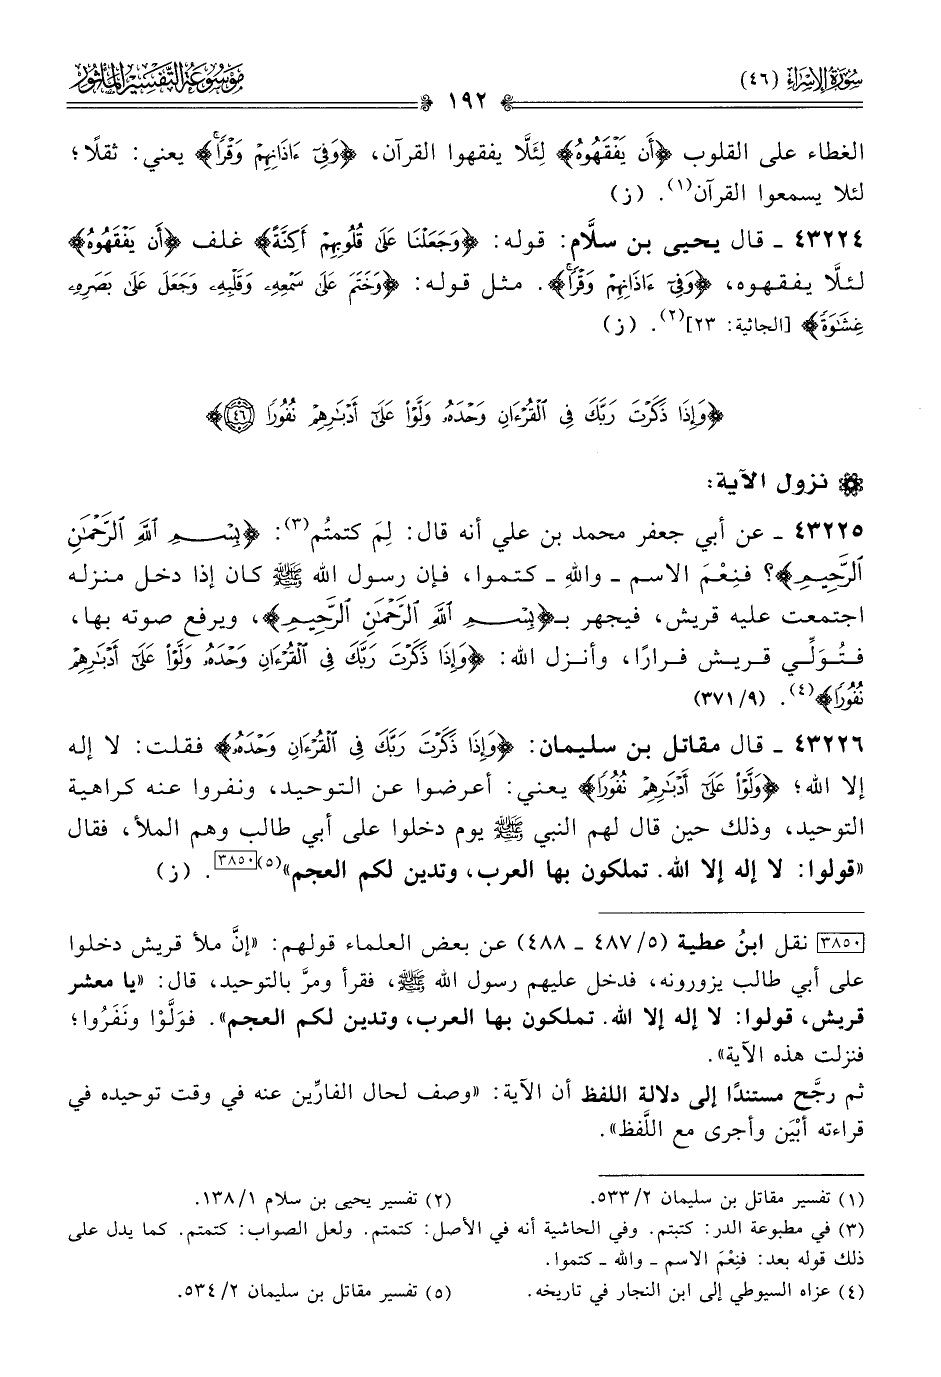 سُورَةُ الإِسْرَاءِ (٤٦)
١٩٢
مَوْسُوعَةُ التَّفْسِيرِ المَأْثُور
الغطاء على القلوب ﴿أَن يَفْقَهُوهُ﴾ لِئَلَّا يفقهوا القرآن، ﴿وَفِىٓ ءَاذَانِهِمْ وَقْرًاۚ﴾ يعني: ثقلًا؛
لئلا يسمعوا القرآن(١). (ز)
٤٣٢٢٤ ـ قال يحيى بن سلَّام: قوله: ﴿وَجَعَلْنَا عَلَىٰ قُلُوبِهِمْ أَكِنَّةً﴾ غلف ﴿أَن يَفْقَهُوهُ﴾
لئلَّا يفقهوه، ﴿وَفِىٓ ءَاذَانِهِمْ وَقْرًاۚ﴾. مثل قوله: ﴿وَخَتَمَ عَلَىٰ سَمْعِهِۦ وَقَلْبِهِۦ وَجَعَلَ عَلَىٰ بَصَرِهِۦ
غِشَٰوَةً﴾ [الجاثية: ٢٣](٢). (ز)
﴿وَإِذَا ذَكَرْتَ رَبَّكَ فِى ٱلْقُرْءَانِ وَحْدَهُۥ وَلَّوْا۟ عَلَىٰٓ أَدْبَٰرِهِمْ نُفُورًا ٤٦﴾
نزول الآية:
٤٣٢٢٥ ـ عن أبي جعفر محمد بن علي أنه قال: لِمَ كتمتُم(٣): ﴿بِسْمِ ٱللَّهِ ٱلرَّحْمَٰنِ
ٱلرَّحِيمِ﴾؟ فنِعْمَ الاسم ـ واللهِ ـ كتموا، فإن رسول الله ﷺ كان إذا دخل منزله
اجتمعت عليه قريش، فيجهر بـ﴿بِسْمِ ٱللَّهِ ٱلرَّحْمَٰنِ ٱلرَّحِيمِ﴾، ويرفع صوته بها،
فتُوَلِّي قريش فرارًا، وأنزل الله: ﴿وَإِذَا ذَكَرْتَ رَبَّكَ فِى ٱلْقُرْءَانِ وَحْدَهُۥ وَلَّوْا۟ عَلَىٰٓ أَدْبَٰرِهِمْ
نُفُورًا﴾(٤). (٩/ ٣٧١)
٤٣٢٢٦ ـ قال مقاتل بن سليمان: ﴿وَإِذَا ذَكَرْتَ رَبَّكَ فِى ٱلْقُرْءَانِ وَحْدَهُۥ﴾ فقلت: لا إله
إلا الله؛ ﴿وَلَّوْا۟ عَلَىٰٓ أَدْبَٰرِهِمْ نُفُورًا﴾ يعني: أعرضوا عن التوحيد، ونفروا عنه كراهية
التوحيد، وذلك حين قال لهم النبي ﷺ يوم دخلوا على أبي طالب وهم الملأ، فقال
«قولوا: لا إله إلا الله. تملكون بها العرب، وتدين لكم العجم»(٥)[٣٨٥٠]. (ز)
[٣٨٥٠] نقل ابنُ عطية (٥/ ٤٨٧ ـ ٤٨٨) عن بعض العلماء قولهم: «إنَّ ملأ قريش دخلوا
على أبي طالب يزورونه، فدخل عليهم رسول الله ﷺ، فقرأ ومرَّ بالتوحيد، قال: «يا معشر
قريش، قولوا: لا إله إلا الله. تملكون بها العرب، وتدين لكم العجم». فوَلَّوْا ونَفَرُوا؛
فنزلت هذه الآية».
ثم رجَّح مستندًا إلى دلالة اللفظ أن الآية: «وصف لحال الفارِّين عنه في وقت توحيده في
قراءته أبْيَن وأجرى مع اللَّفظ».
(١) تفسير مقاتل بن سليمان ٢/ ٥٣٣. (٢) تفسير يحيى بن سلام ١/ ١٣٨.
(٣) في مطبوعة الدر: كتبتم. وفي الحاشية أنه في الأصل: كتمتم. ولعل الصواب: كتمتم. كما يدل على
ذلك قوله بعد: فنِعْمَ الاسم ـ والله ـ كتموا.
(٤) عزاه السيوطي إلى ابن النجار في تاريخه. (٥) تفسير مقاتل بن سليمان ٢/ ٥٣٤.